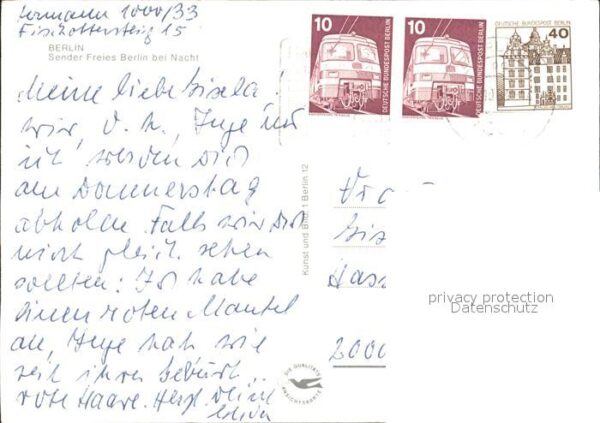 1000/33
Fischottersteig 15
BERLIN
Sender Freies Berlin bei Nacht
Meine liebe Gisela
wir, d. h., Inge und
ich werden Dich
am Donnerstag
abholen. Falls wir Dich
nicht gleich sehen
sollten: Ich habe
einen roten Mantel
an, Inge hat wie
seit ihrer Geburt
rote Haare. Herzl. Deine
10
DEUTSCHE BUNDESPOST BERLIN
10
DEUTSCHE BUNDESPOST BERLIN
DEUTSCHE BUNDESPOST BERLIN
40
Kunst und Bild, 1 Berlin 12
DIE QUALITÄTS
ANSICHTSKARTE
Gis
2000
privacy protection
Datenschutz